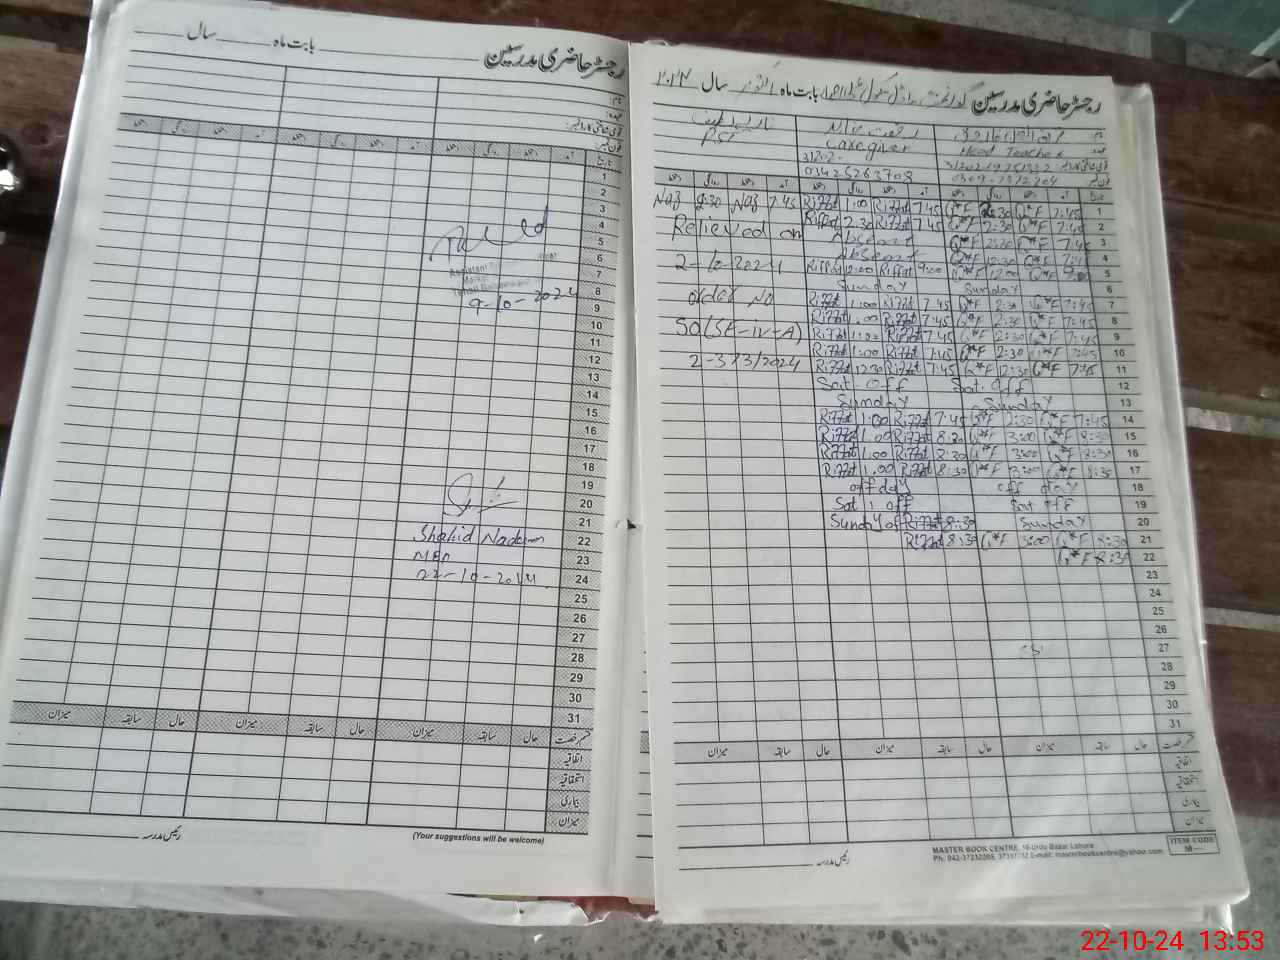 رجسٹر حاضری مدرسین بابت ماہ سال
نام
عہدہ
آمد دستخط روانگی دستخط آمد دستخط روانگی دستخط آمد دستخط روانگی دستخط
1
2
3
4
5
6
7
8
9
10
11
12
13
14
15
16
17
18
19
20
21
22
23
24
25
26
27
28
29
30
31
9-10-2024
Shahid Nadeem
MEA
22-10-2024
قسم رخصت حال سابقہ میزان حال سابقہ میزان حال سابقہ میزان
اتفاقیہ
استحقاقیہ
بیماری
میزان
رئیس مدرسہ
(Your suggestions will be welcome)
رجسٹر حاضری مدرسین بابت ماہ اکتوبر سال ۲۰۲۴
نام
Head Teacher Caregiver PST
03425263708
تاریخ آمد دستخط روانگی دستخط آمد دستخط روانگی دستخط آمد دستخط روانگی دستخط
Naz 2:30 Naz 7:45 Riffat 1:00 Riffat 7:45 Q*F 2:30 Q*F 7:45 1
Riffat 2:30 Riffat 7:45 Q*F 2:30 Q*F 7:45 2
Relieved on Absent Q*F 2:30 Q*F 7:45 3
Absent Q*F 12:30 Q*F 7:45 4
2-10-2024 Riffat 12:00 Riffat 9:00 Q*F 12:00 Q*F 9:00 5
Sunday Sunday 6
order No Riffat 1:00 Riffat 7:45 Q*F 2:30 Q*F 7:45 7
Riffat 1:00 Riffat 7:45 Q*F 2:30 Q*F 7:45 8
SO(SE-IV-A) Riffat 1:00 Riffat 7:45 Q*F 2:30 Q*F 7:45 9
Riffat 1:00 Riffat 7:45 Q*F 2:30 Q*F 7:45 10
2-383/2024 Riffat 12:30 Riffat 7:45 Q*F 12:30 Q*F 7:45 11
Sat: off Sat: off 12
Sunday Sunday 13
Riffat 1:00 Riffat 7:45 Q*F 2:30 Q*F 7:45 14
Riffat 1:00 Riffat 8:30 Q*F 3:00 Q*F 8:30 15
Riffat 1:00 Riffat 8:30 Q*F 3:00 Q*F 8:30 16
Riffat 1:00 Riffat 8:30 Q*F 3:00 Q*F 8:30 17
off day off day 18
Sat: off Sat off 19
Sunday off Riffat 8:30 Sunday 20
Riffat 8:30 Q*F 3:00 Q*F 8:30 21
Q*F 8:30 22
23
24
25
26
27
28
29
30
31
قسم رخصت حال سابقہ میزان حال سابقہ میزان حال سابقہ میزان
اتفاقیہ
استحقاقیہ
بیماری
میزان
رئیس مدرسہ
MASTER BOOK CENTRE, 16-Urdu Bazar Lahore
ITEM CODE
M—
22-10-24 13:53